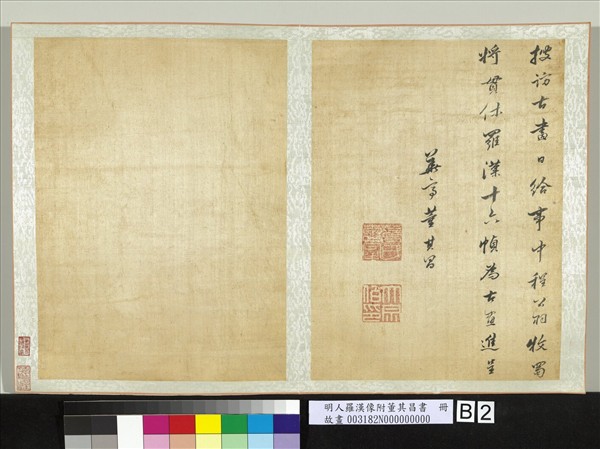 搜訪古畫日給事中程公羽牧蜀
將貫休羅漢十六幀為古畫進呈
華亭董其昌
明人羅漢像附董其昌書 冊
故畫 003182N000000000
B 2